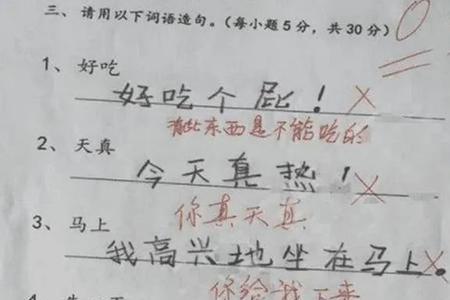 三、请用以下词语造句。(每小题5分，共30分) 0
1、好吃
好吃个屁！×
有些东西是不能吃的
2、天真
今天真热！×
你真天真
3、马上
我高兴地坐在马上。×
你给我下来